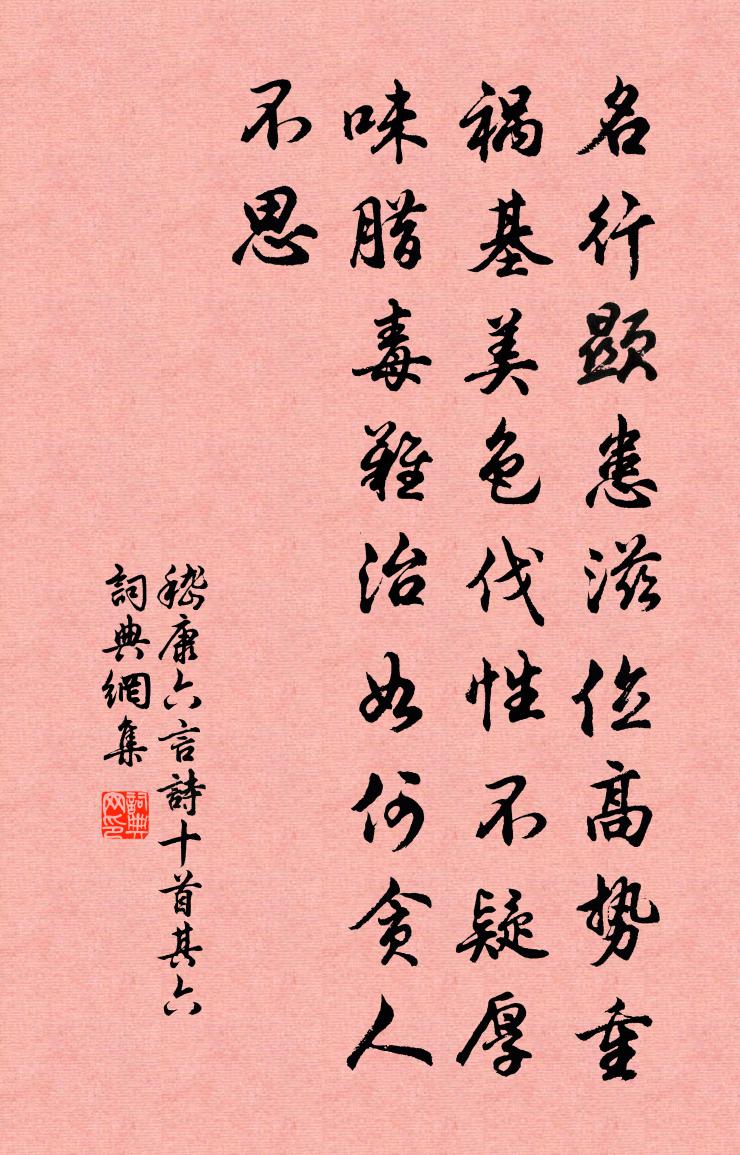 名行顯患滋位高势重
祸基美色伐性不疑厚
味腊毒難治如何贪人
不思
嵇康六言詩十首其六
詞典網集
詞典网印